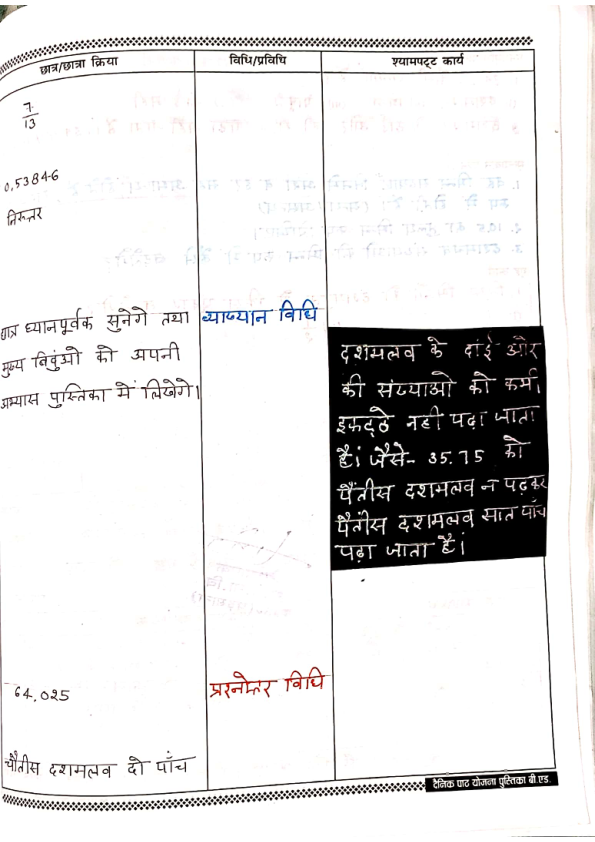 छात्र/छात्रा क्रिया
विधि/प्रविधि
श्यामपट्ट कार्य
7
13
0.53846
निरूत्तर
छात्र ध्यानपूर्वक सुनेगे तथा
मुख्य बिंदुओ को अपनी
अभ्यास पुस्तिका में लिखेगे।
व्याख्यान विधि
दशमलव के दांई और
की संख्याओ को कभी
इकट्ठे नही पढ़ा जाता
है। जैसे- 35.75 को
पैंतीस दशमलव न पढ़कर
पैंतीस दशमलव सात पाँच
पढ़ा जाता है।
64.025
प्रश्नोत्तर विधि
चौतीस दशमलव दो पाँच
दैनिक पाठ योजना पुस्तिका बी.एड.